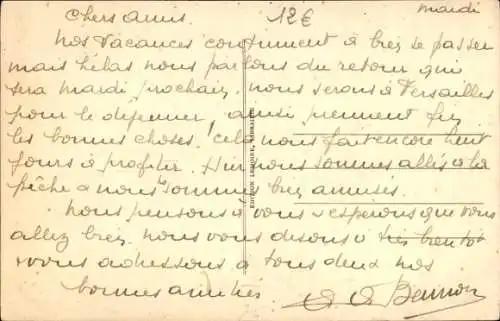 mardi
12€
Chers amis.
Nos vacances continuent à bien se passer
mais hélas nous parlons du retour qui
sera mardi prochain. nous serons à Versailles
pour le déjeuner, ainsi prennent fin
les bonnes choses. cela nous fait encore huit
jours à profiter. Hier nous sommes allés à la
pêche et nous nous sommes bien amusés.
Nous pensons à vous et espérons que vous
allez bien. nous vous disons à très bientôt
vous adressons à tous deux nos
bonnes amitiés.